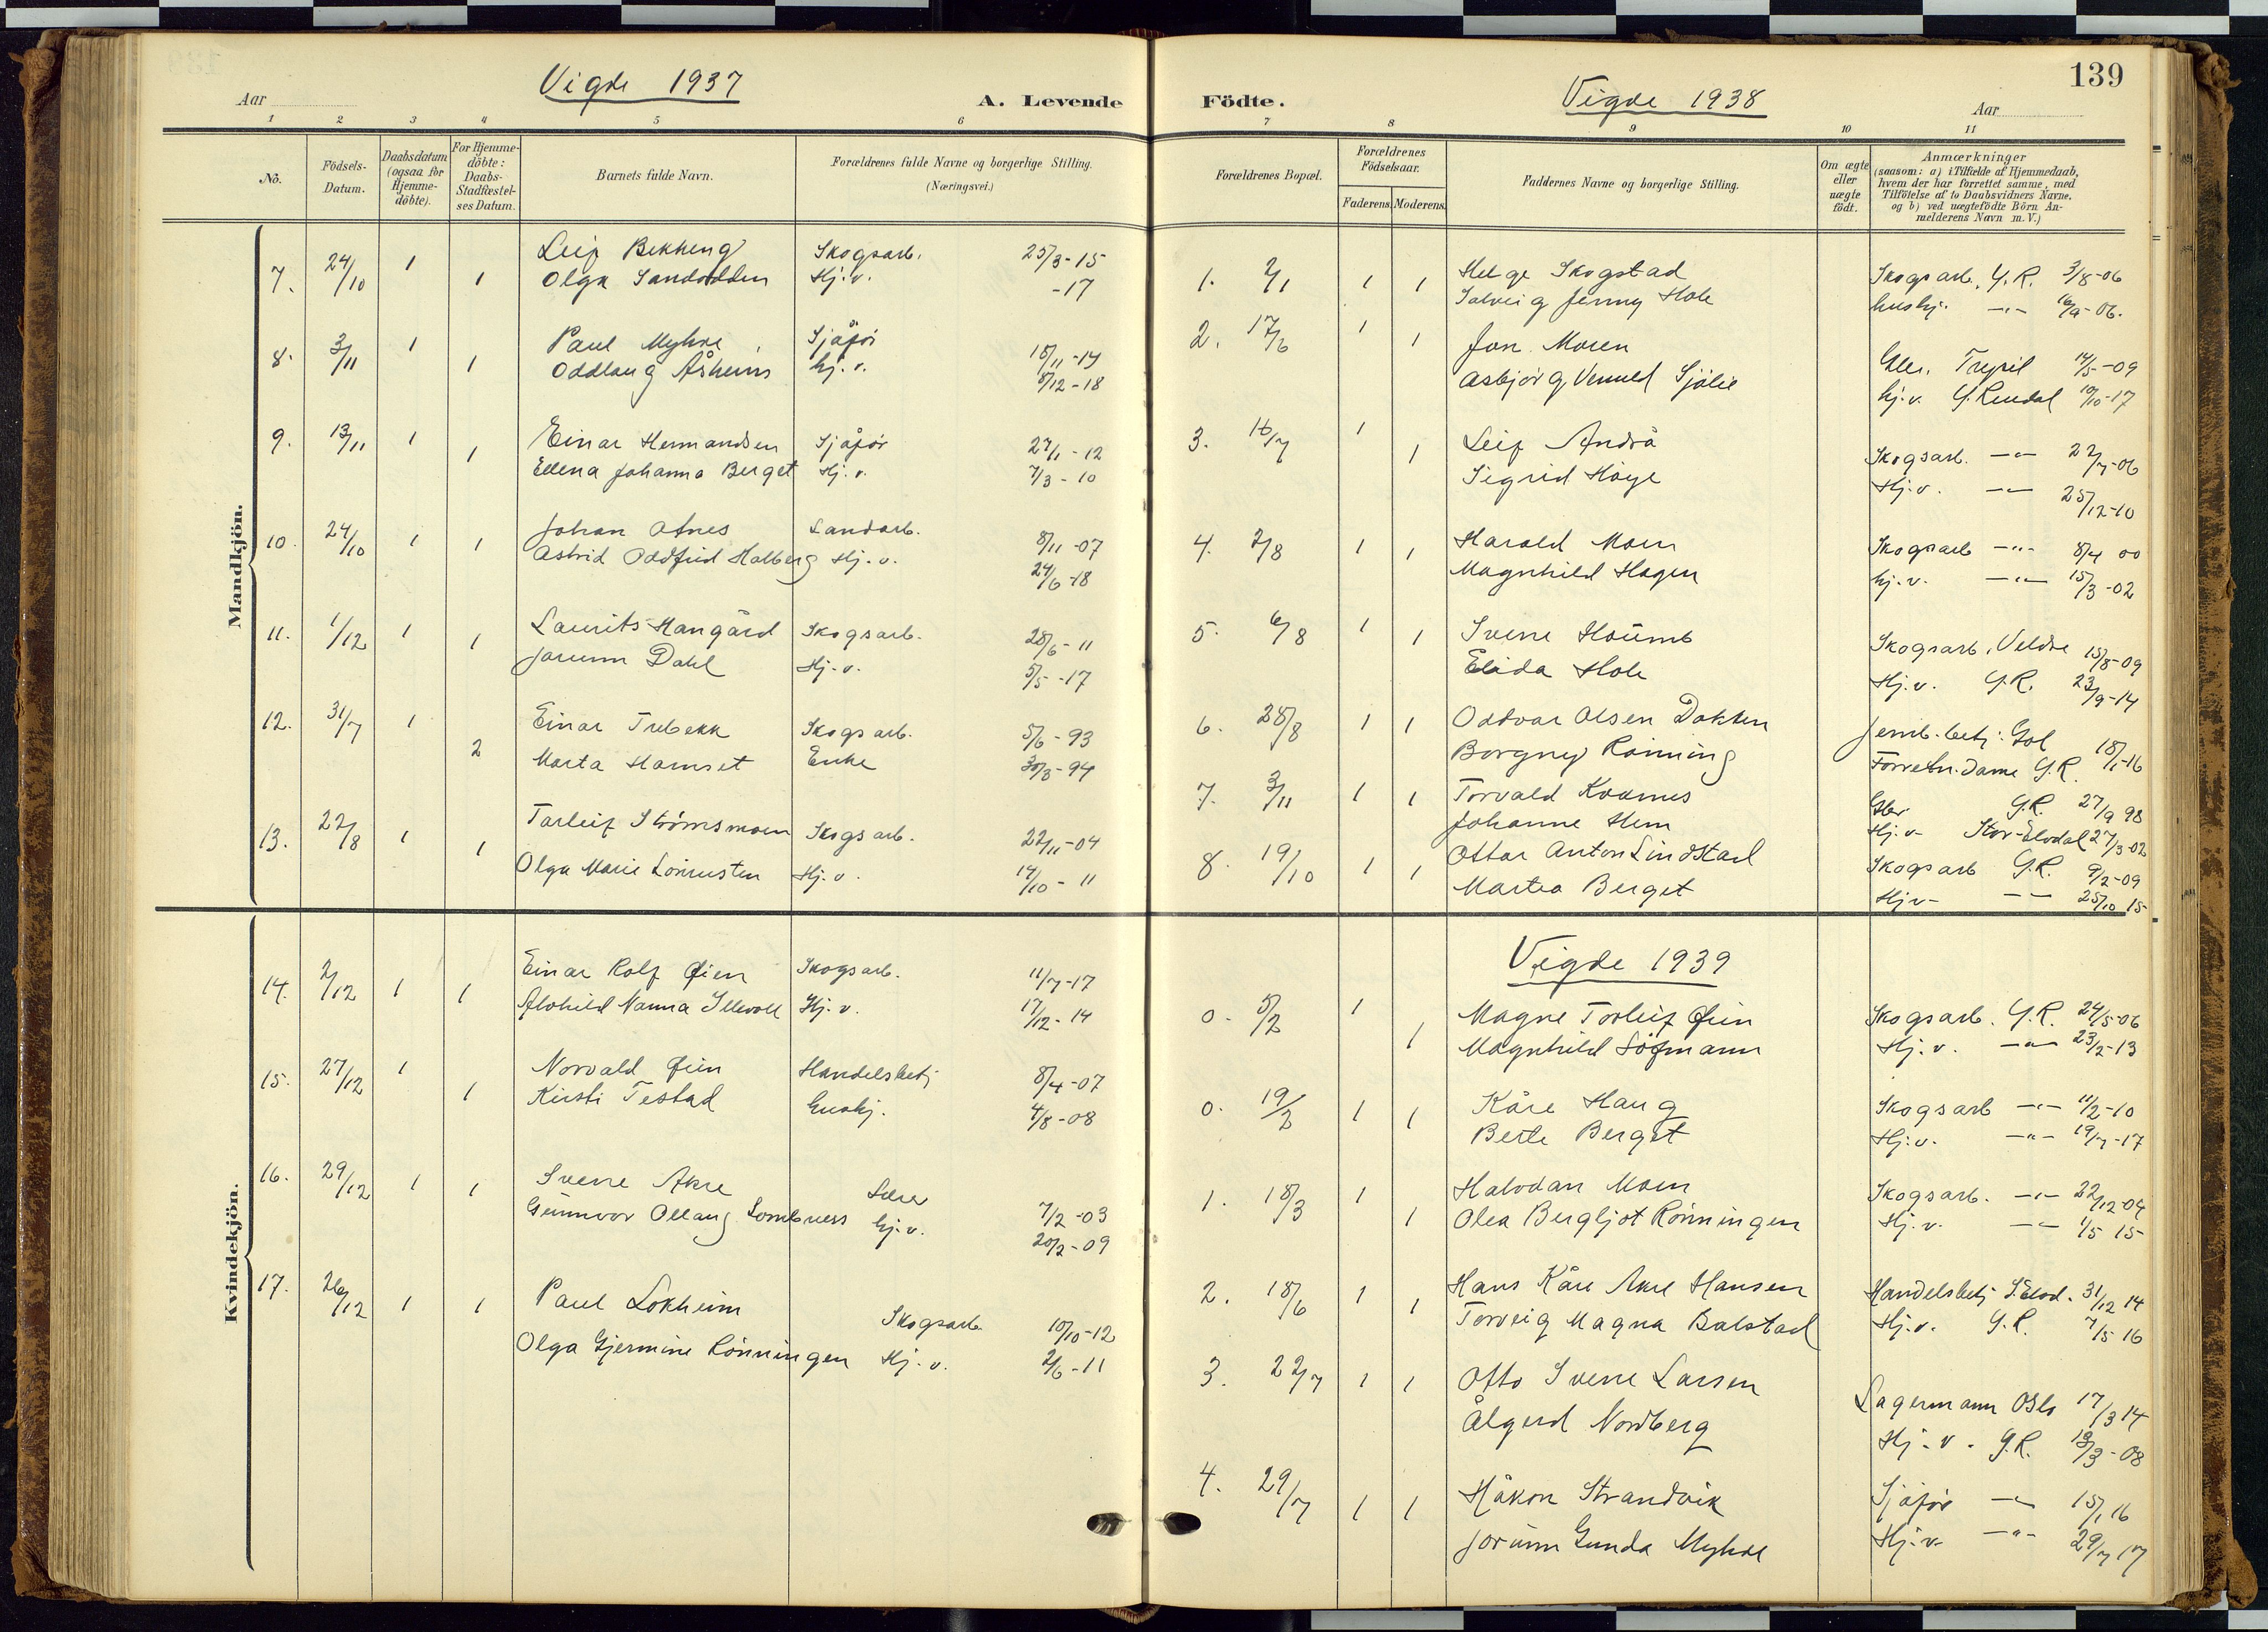 139
Aar
Vigde 1937
A. Levende
1 2 3 4 5 6
No.
Födsels-Datum.
Daabsdatum (ogsaa for Hjemme-döbte).
For Hjemme-döbte: Daabs-Stadfæstel-ses Datum.
Barnets fulde Navn.
Forældrenes fulde Navne og borgerlige Stilling.
(Næringsvei.)
Mandkjön.
7. 24/10 1 Leif Bekkeng Skogsarb. 25/3-15
1 Olga Sandodden Hj.v. -17
8. 3/11 1 Paul Myhre Sjåför 18/11-14
1 Oddlaug Åsheim hj.v. 8/12-18
9. 13/11 1 Einar Hermandsen Sjåför 27/1-12
1 Ellena Johanna Berget Hj.v. 7/3-10
10. 24/10 1 1 Johan Atnes Landarb. 8/11-07
Astrid Oddfrid Halberg Hj.v. 24/6-18
11. 1/12 1 Laurits Hangård Skogsarb. 28/6-11
1 Jorunn Dahl Hj.v. 5/5-17
12. 31/7 1 Einar Trebekk Skogsarb. 5/6-93
2 Marta Hamset Enke 30/3-94
13. 22/8 1 Tarleif Strömsmoen Skogsarb. 22/11-04
1 Olga Marie Lönrusten Hj.v. 14/10-11
Kvindekjön.
14. 2/12 1 1 Einar Rolf Øien Skogsarb. 11/7-17
Alvhild Nanna Illevoll Hj.v. 17/12-14
15. 27/12 1 Norvald Øien Handelsbetj 8/4-07
1 Kirsti Testad hushj. 4/8-08
16. 29/12 1 1 Sverre Akre Lærer 7/2-03
Gunnvor Ollaug Lombness hj.v. 20/2-09
17. 26/12 1 1 Paul Lökheim Skogsarb 10/10-12
Olga Gjermine Rönningen Hj.v. 2/6-11
Födte.
Vigde 1938
Aar
7 8 9 10 11
Forældrenes Bopæl.
Forældrenes Födselsaar.
Faderens. Moderens.
Faddernes Navne og borgerlige Stilling.
Om ægte eller uægte födt.
Anmærkninger
(saasom: a) i Tilfælde af Hjemmedaab,
hvem der har forrettet samme, med
Tilföielse af to Daabsvidners Navne.
og b) ved uægtefödte Börn An-
melderens Navn m. V.)
1. 2/1 1 1 Helge Skogstad Skogsarb. Y.R. 3/8-06
Solveig Jenny Hole hushj. -"- 16/9-06.
2. 17/6 1 Jon Moren Trysil 14/5-09
1 Asbjørg Venned Sjölie hj.v. Y.Rendal 19/10-17
3. 16/7 1 Leif Andrå Skogsarb. -"- 22/7-06
1 Sigrid Höye Hj.v. -"- 25/12-10
4. 2/8 1 1 Harald Moen Skogsarb -"- 8/4 00
Magnhild Hagen hj.v. -"- 15/3-02
5. 6/8 1 1 Sverre Houmb Skogsarb. Veldre 15/8-09
Elida Hole Hj.v. Y.R. 23/9-14
6. 28/8 1 1 Oddvar Olsen Dokken Jernb.betj. Gol 18/1-16
Borgny Rönning Forretn.dame Y.R.
7. 3/11 1 1 Torvald Kvarnes Gbr Y.R. 27/9 98
Johanne Hem Hj.v- Stor-Elvdal 27/3-02
8. 19/10 1 1 Ottar Anton Lindstad Skogsarb Y.R. 9/2-09
Martea Berget Hjv- -"- 25/10 15
Vigde 1939
0. 5/2 1 Magne Torleif Øien Skogsarb. Y.R. 24/5-06
1 Magnhild Löfmann Hj.v. -"- 23/2-13
0. 19/2 1 1 Kåre Haug Skogsarb -"- 11/2-10
Berte Berget Hj.v. -"- 19/7-17
1. 18/3 1 Halvdan Moen Skogsarb. -"- 22/12-09
1 Olea Bergljot Rönningen Hj.v. -"- 1/5 15
2. 18/6 1 1 Hans Kåre Akre Hansen Handelsbetj S.Elvd. 31/12 14
Torveig Magna Balstad Hj.v. Y.R. 7/5 16
3. 22/7 1 1 Otto Sverre Larsen Lagermann Oslo 17/3 14
Ålgerd Nordberg Hj.v. Y.R. 18/3-08
4. 29/7 1 1 Håkon Strandvik Sjåför -"- 15/1 16
Jorunn Gunda Myhre Hj.v. -"- 29/7 17